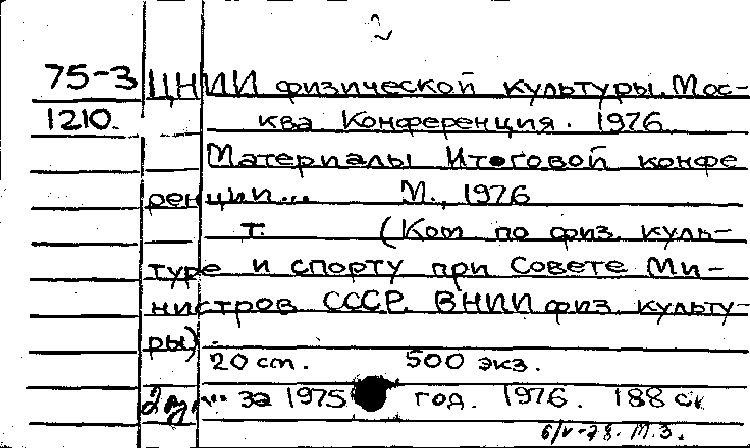 2
75-3 ЦНИИ физической культуры. Мос-
1210. ква Конференция. 1976
Материалы Итоговой конфе
ренции... М., 1976
т. (Ком по физ. куль-
туре и спорту при Совете Ми-
нистров СССР. ВНИИ физ. культу-
ры).
20 cm. 500 экз.
... за 1975 год. 1976. 188 с.
6/V-78. М.З.